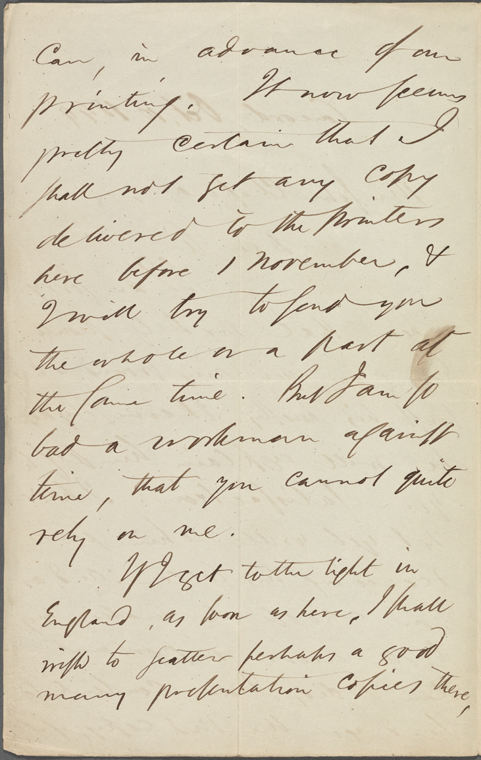 can, in advance of our
printing. It now seems
pretty certain that I
shall not get any copy
delivered to the printers
here before 1 November, &
I will try to send you
the whole or a part at
the same time. But I am so
bad a workman against
time, that you cannot quite
rely on me.
If I get to the light in
England, as soon as here, I shall
wish to scatter perhaps a good
many presentation copies there,